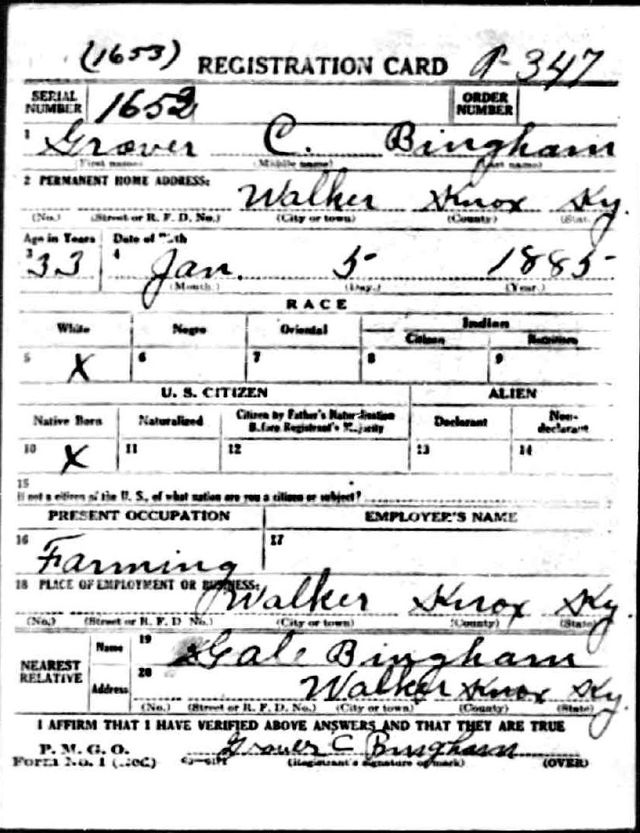 (1653) REGISTRATION CARD 347
SERIAL NUMBER 1652 ORDER NUMBER
1 Grover C. Bingham
(First name) (Middle name) (Last name)
2 PERMANENT HOME ADDRESS: Walker Knox Ky.
(No.) (Street or R. F. D. No.) (City or town) (County) (State)
Age in Years Date of Birth
3 33 4 Jan. 5 1885
(Month.) (Day.) (Year.)
RACE
White Negro Oriental Indian
Citizen
5 X 6 7 8 9
U. S. CITIZEN ALIEN
Native Born Naturalized Citizen by Father's Naturalization Before Registrant's Majority Declarant Non-declarant
10 X 11 12 13 14
15
If not a citizen of the U. S., of what nation are you a citizen or subject?
PRESENT OCCUPATION EMPLOYER'S NAME
16 Farming 17
18 PLACE OF EMPLOYMENT OR BUSINESS: Walker Knox Ky.
(No.) (Street or R. F. D. No.) (City or town) (County) (State)
NEAREST RELATIVE Name 19 Bingham
Address 20 Walker Knox Ky.
(No.) (Street or R. F. D. No.) (City or town) (County) (State)
I AFFIRM THAT I HAVE VERIFIED ABOVE ANSWERS AND THAT THEY ARE TRUE
P. M. G. O. Grover C Bingham
Form No. 1 (Red) (Registrant's signature or mark) (OVER)